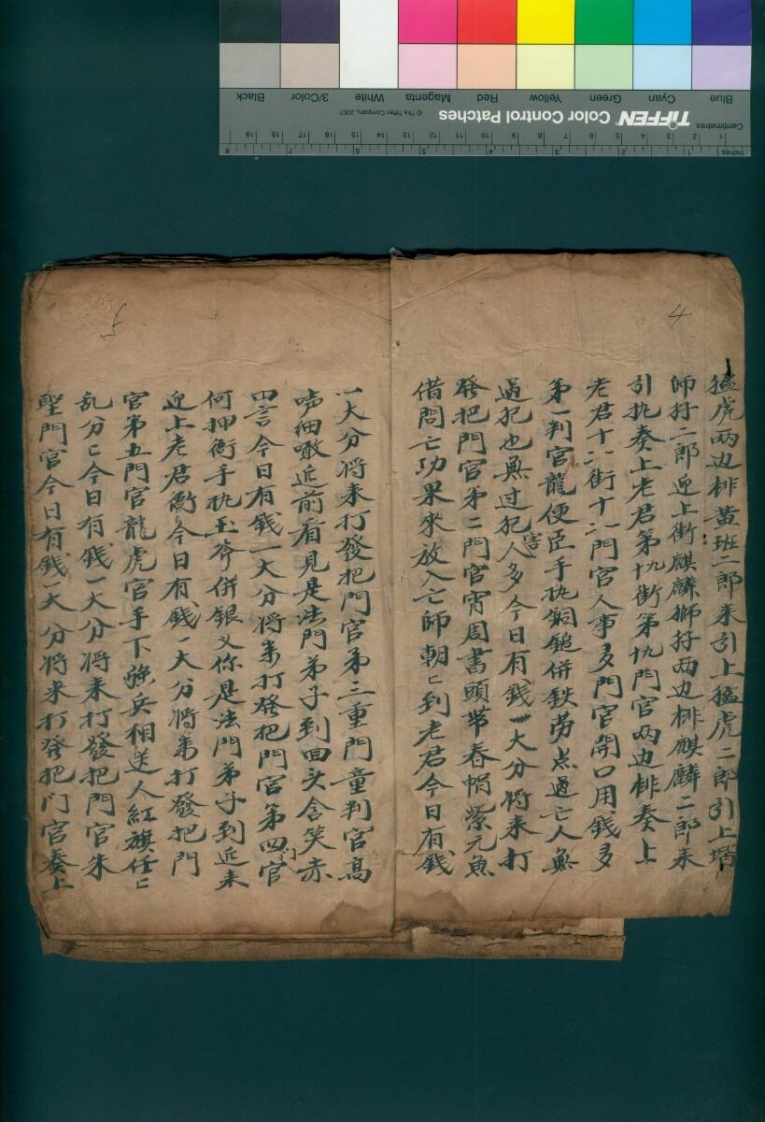 Blue Cyan Green Yellow Red Magenta White 3/Color Black
Centimetres
TIFFEN Color Control Patches
© The Tiffen Company, 2007
1 2 3 4 5 6 7 8 9 10 11 12 13 14 15 16 17 18 19
Inches
1 2 3 4 5 6 7 8
4
猛虎两边排黄班二郎来引上猛虎二郎引上堦
師狩二郎迎上街麒麟獅狩两边排麒麟二郎来
引执奏上老君第九街第九門官两边排奏上
老君十八街十二門官人事多門官開口用錢多
第一判官龍便臣手执銅鎚併鉄劳点過亡人無
過犯也無过犯人害多今日有錢一大分将来打
發把門官第二門官宵周書頭带春帽紫元魚
借問亡功果來放入亡師朝〻到老君今日有錢
5
一大分将来打發把門官第三重門童判官高
声细嗷近前看見是法門弟子到回头含笑赤
四言今日有錢一大分将来打發把門官第四官
何押衙手执玉斧併銀义你是法門弟子到近来
迎上老君衙今日有錢一大分将来打發把門
官第五門官龍虎官手下強兵相送人紅旗任〻
乱分〻今日有錢一大分将来打發把門官朱
聖門官今日有錢一大分将来打發把门官奏上